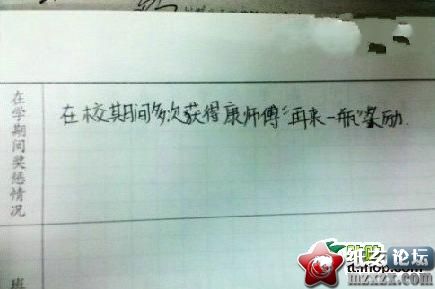 在学期间奖惩情况
在校期间多次获得康师傅“再来一瓶”奖励.
班
纸玄论坛
mzxzx.com